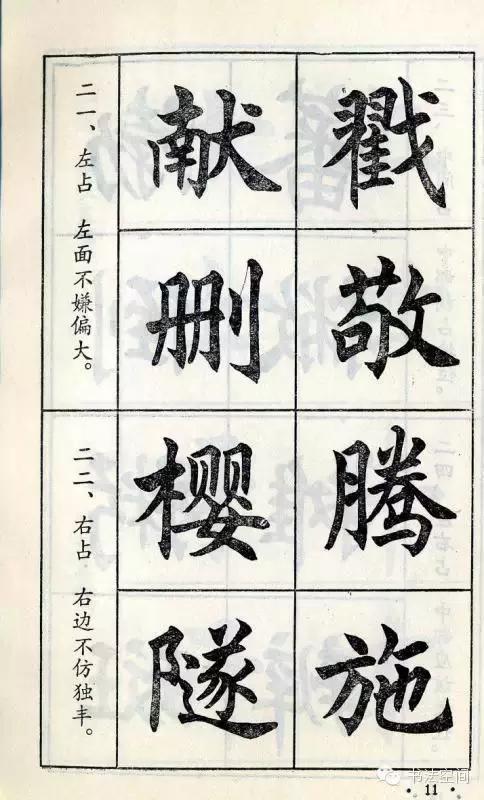 二一、左占 左面不嫌偏大。
献戳
删敬
二二、右占 右边不仿独丰。
樱腾
隧施
书法空间
11